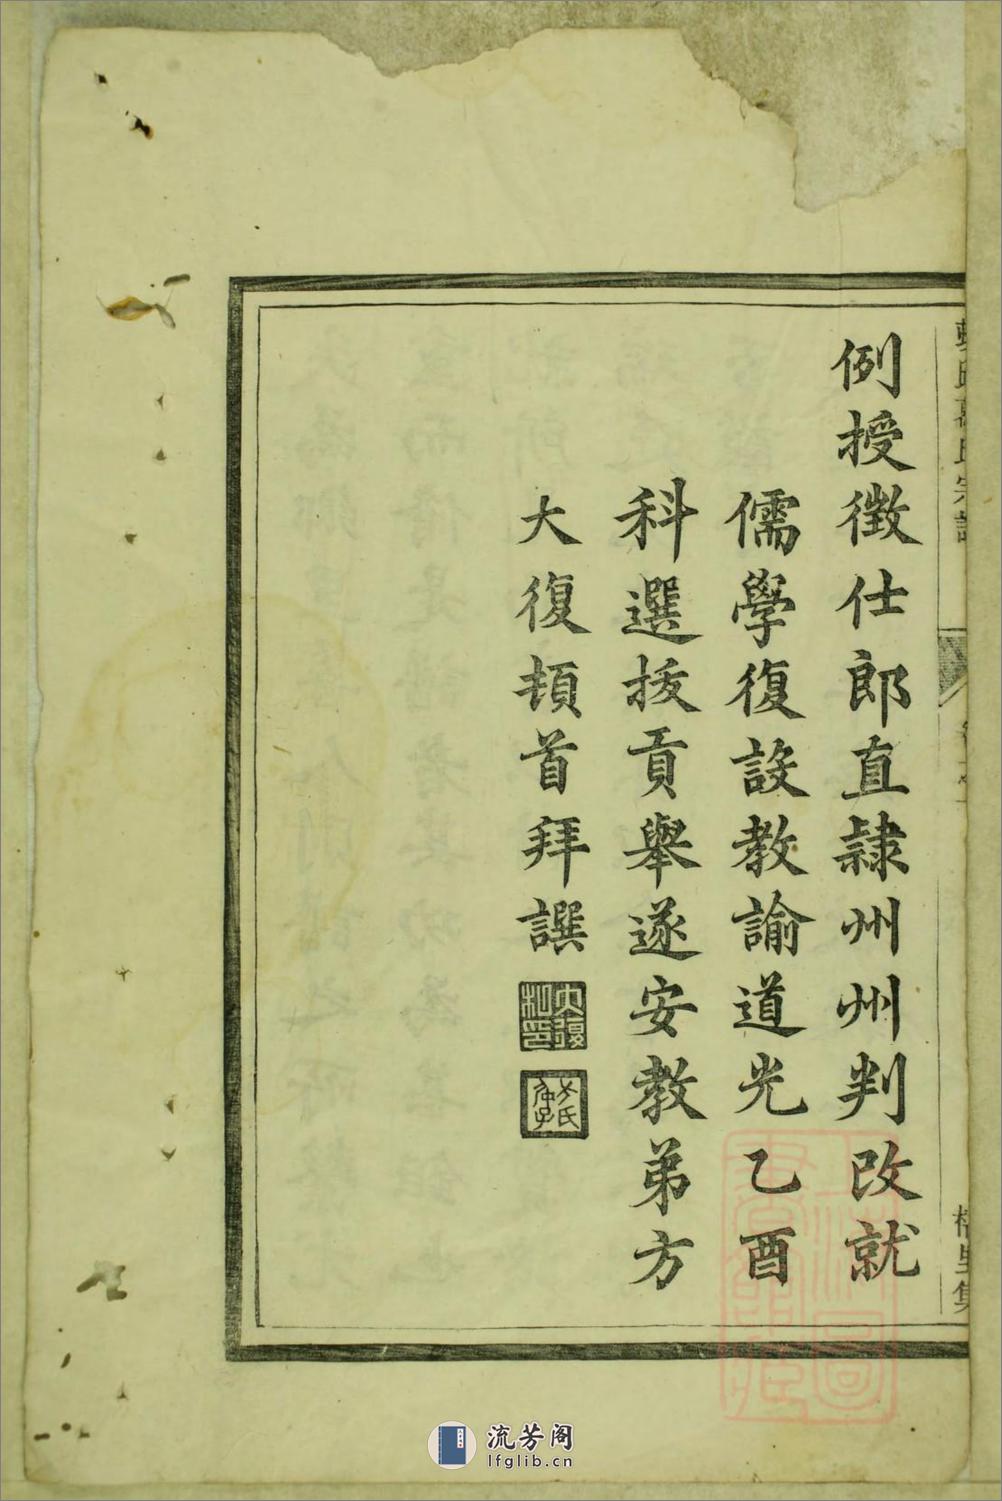 例授徵仕郎直隷州州判改就
儒學復設教諭道光乙酉
科選拔貢舉遂安教弟方
大復頓首拜譔
大復
方氏
氏宗譜
流芳阁
lfglib.cn